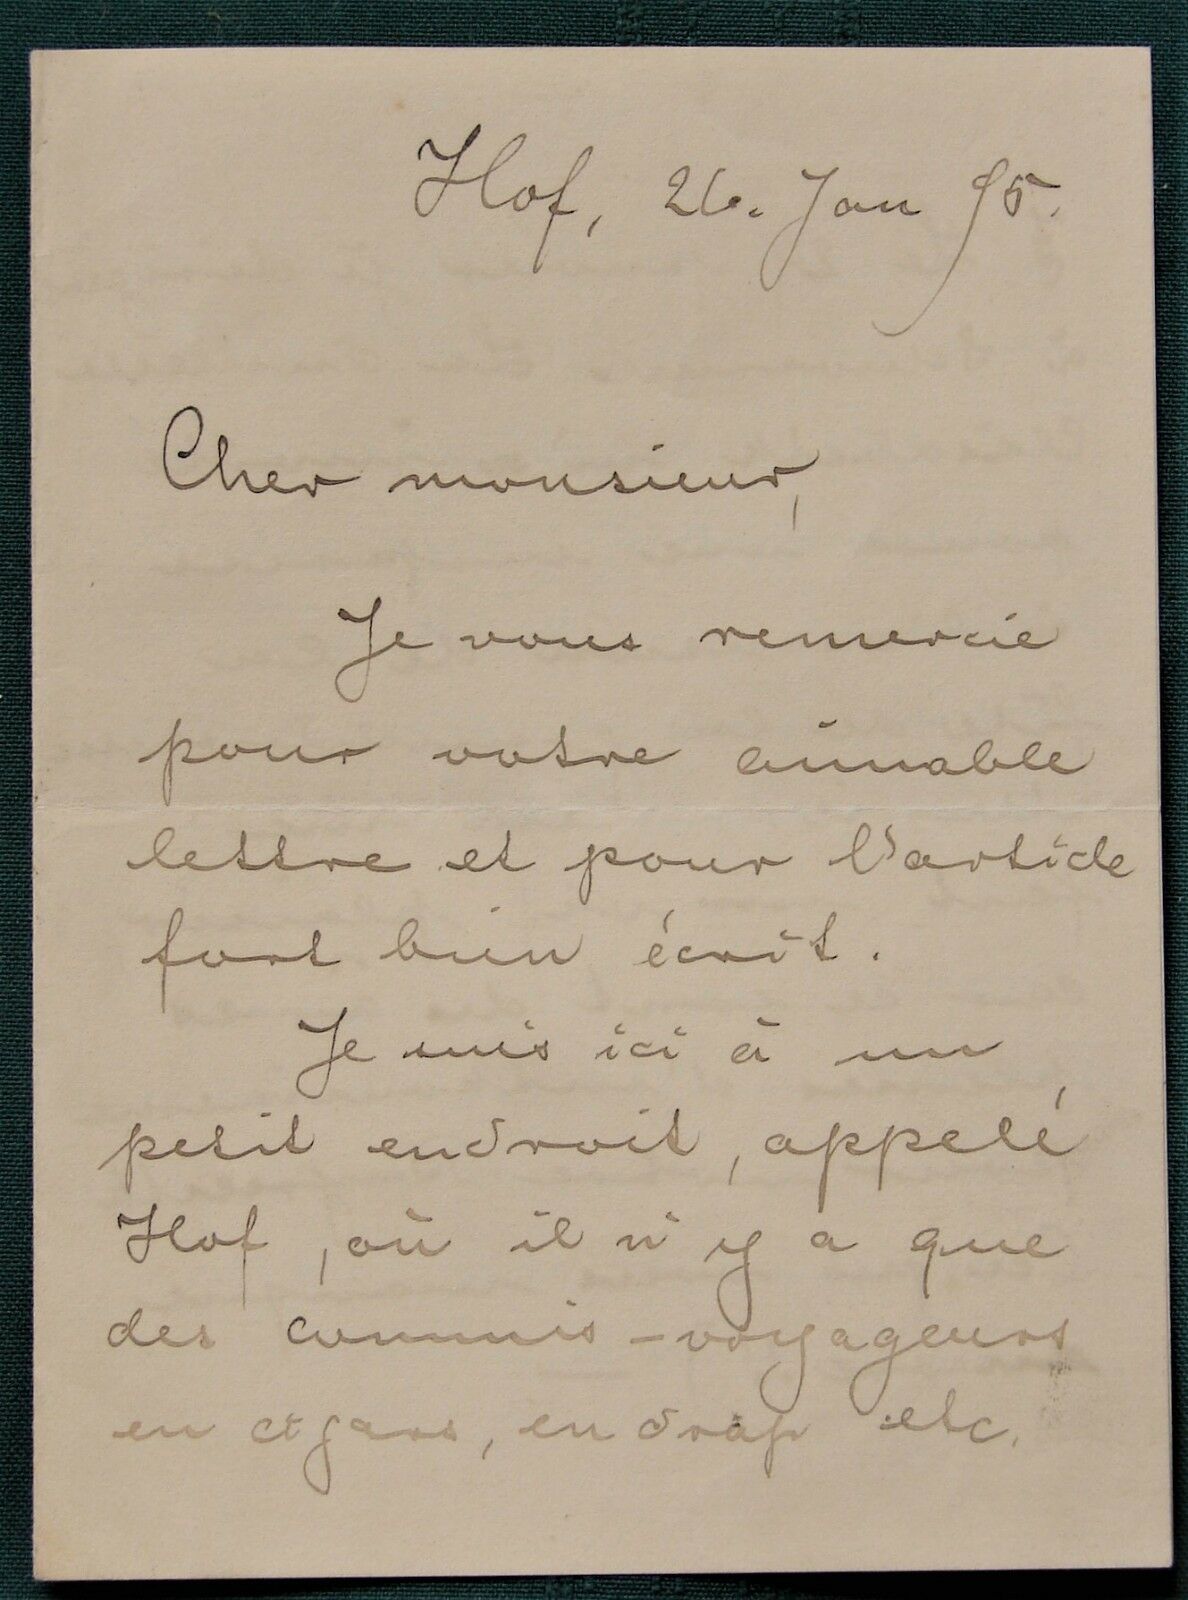 Hof, 26. Jan 95.
Cher monsieur,
Je vous remercie
pour votre aimable
lettre et pour l'article
fort bien écrit.
Je suis ici à un
petit endroit, appelé
Hof, où il n'y a que
des commis-voyageurs
en cigars, en drap etc.